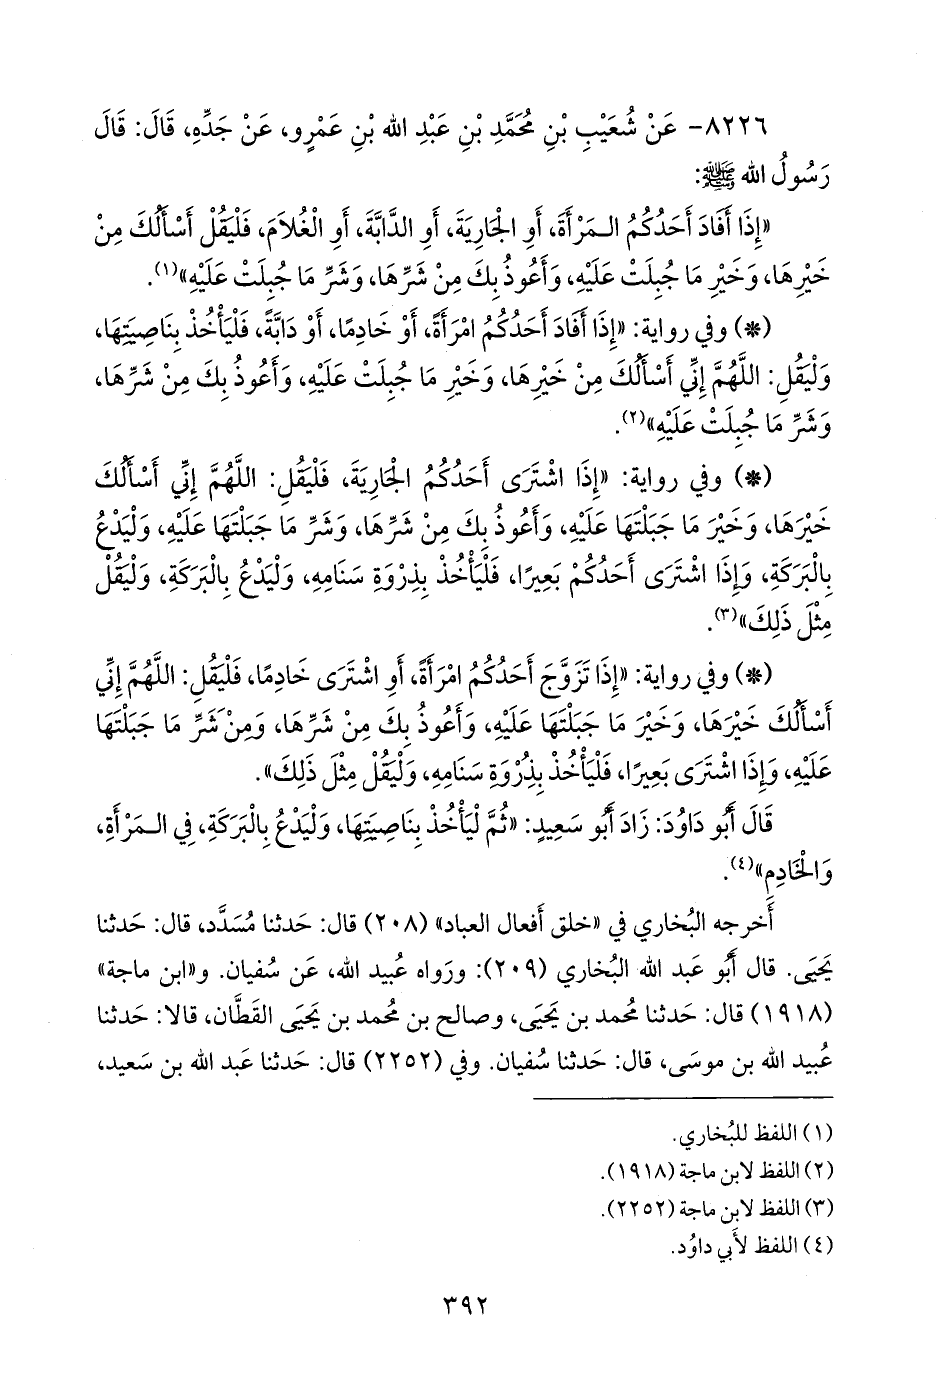 ٨٢٢٦- عَنْ شُعَيْبِ بْنِ مُحَمَّدِ بْنِ عَبْدِ الله بْنِ عَمْرٍو، عَنْ جَدِّهِ، قَالَ: قَالَ
رَسُولُ الله ﷺ:
«إِذَا أَفَادَ أَحَدُكُمُ الـمَرْأَةَ، أَوِ الْجَارِيَةَ، أَوِ الدَّابَّةَ، أَوِ الْغُلاَمَ، فَلْيَقُلْ أَسْأَلُكَ مِنْ
خَيْرِهَا، وَخَيْرِ مَا جُبِلَتْ عَلَيْهِ، وَأَعُوذُ بِكَ مِنْ شَرِّهَا، وَشَرِّ مَا جُبِلَتْ عَلَيْهِ»(١).
(*) وفي رواية: «إِذَا أَفَادَ أَحَدُكُمُ امْرَأَةً، أَوْ خَادِمًا، أَوْ دَابَّةً، فَلْيَأْخُذْ بِنَاصِيَتِهَا،
وَلْيَقُلِ: اللَّهُمَّ إِنِّي أَسْأَلُكَ مِنْ خَيْرِهَا، وَخَيْرِ مَا جُبِلَتْ عَلَيْهِ، وَأَعُوذُ بِكَ مِنْ شَرِّهَا،
وَشَرِّ مَا جُبِلَتْ عَلَيْهِ»(٢).
(*) وفي رواية: «إِذَا اشْتَرَى أَحَدُكُمُ الْجَارِيَةَ، فَلْيَقُلِ: اللَّهُمَّ إِنِّي أَسْأَلُكَ
خَيْرَهَا، وَخَيْرَ مَا جَبَلْتَهَا عَلَيْهِ، وَأَعُوذُ بِكَ مِنْ شَرِّهَا، وَشَرِّ مَا جَبَلْتَهَا عَلَيْهِ، وَلْيَدْعُ
بِالْبَرَكَةِ، وَإِذَا اشْتَرَى أَحَدُكُمْ بَعِيرًا، فَلْيَأْخُذْ بِذِرْوَةِ سَنَامِهِ، وَلْيَدْعُ بِالْبَرَكَةِ، وَلْيَقُلْ
مِثْلَ ذَلِكَ»(٣).
(*) وفي رواية: «إِذَا تَزَوَّجَ أَحَدُكُمُ امْرَأَةً، أَوِ اشْتَرَى خَادِمًا، فَلْيَقُلِ: اللَّهُمَّ إِنِّي
أَسْأَلُكَ خَيْرَهَا، وَخَيْرَ مَا جَبَلْتَهَا عَلَيْهِ، وَأَعُوذُ بِكَ مِنْ شَرِّهَا، وَمِنْ شَرِّ مَا جَبَلْتَهَا
عَلَيْهِ، وَإِذَا اشْتَرَى بَعِيرًا، فَلْيَأْخُذْ بِذُِرْوَةِ سَنَامِهِ، وَلْيَقُلْ مِثْلَ ذَلِكَ».
قَالَ أَبُو دَاوُدَ: زَادَ أَبُو سَعِيدٍ: «ثُمَّ لْيَأْخُذْ بِنَاصِيَتِهَا، وَلْيَدْعُ بِالْبَرَكَةِ، فِي الـمَرْأَةِ،
وَالْخَادِمِ»(٤).
أَخرجه البُخاري في «خلق أَفعال العباد» (٢٠٨) قال: حَدثنا مُسَدَّد، قال: حَدثنا
يَحيَى. قال أَبو عَبد الله البُخاري (٢٠٩): ورَواه عُبيد الله، عَن سُفيان. و«ابن ماجة»
(١٩١٨) قال: حَدثنا مُحمد بن يَحيَى، وصالح بن مُحمد بن يَحيَى القَطَّان، قالا: حَدثنا
عُبيد الله بن موسَى، قال: حَدثنا سُفيان. وفي (٢٢٥٢) قال: حَدثنا عَبد الله بن سَعيد،
(١) اللفظ للبُخاري.
(٢) اللفظ لابن ماجة (١٩١٨).
(٣) اللفظ لابن ماجة (٢٢٥٢).
(٤) اللفظ لأَبي داوُد.
٣٩٢